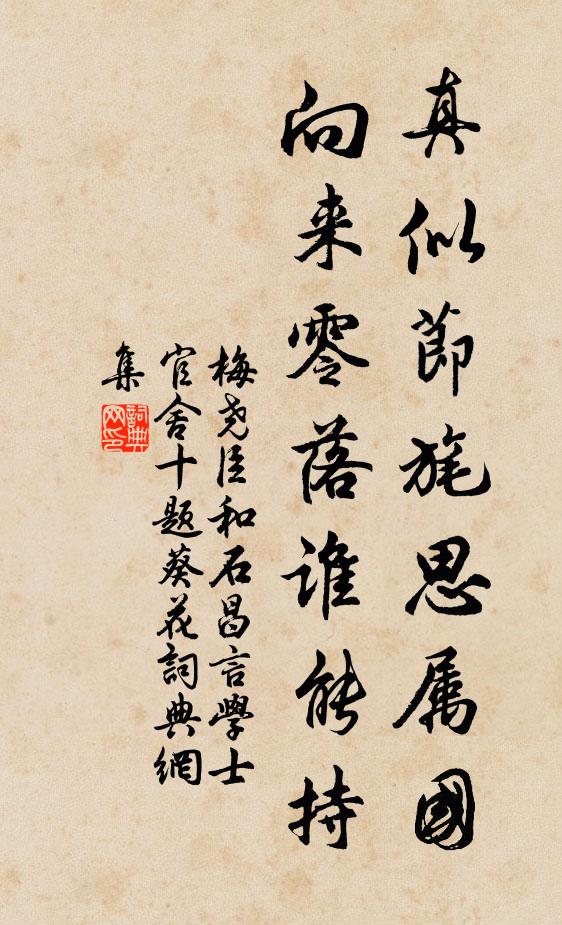 真似節旄思属國
向来零落谁能持
梅尧臣和石昌言學士
官舍十题葵花詞典網
集
詞典
网印